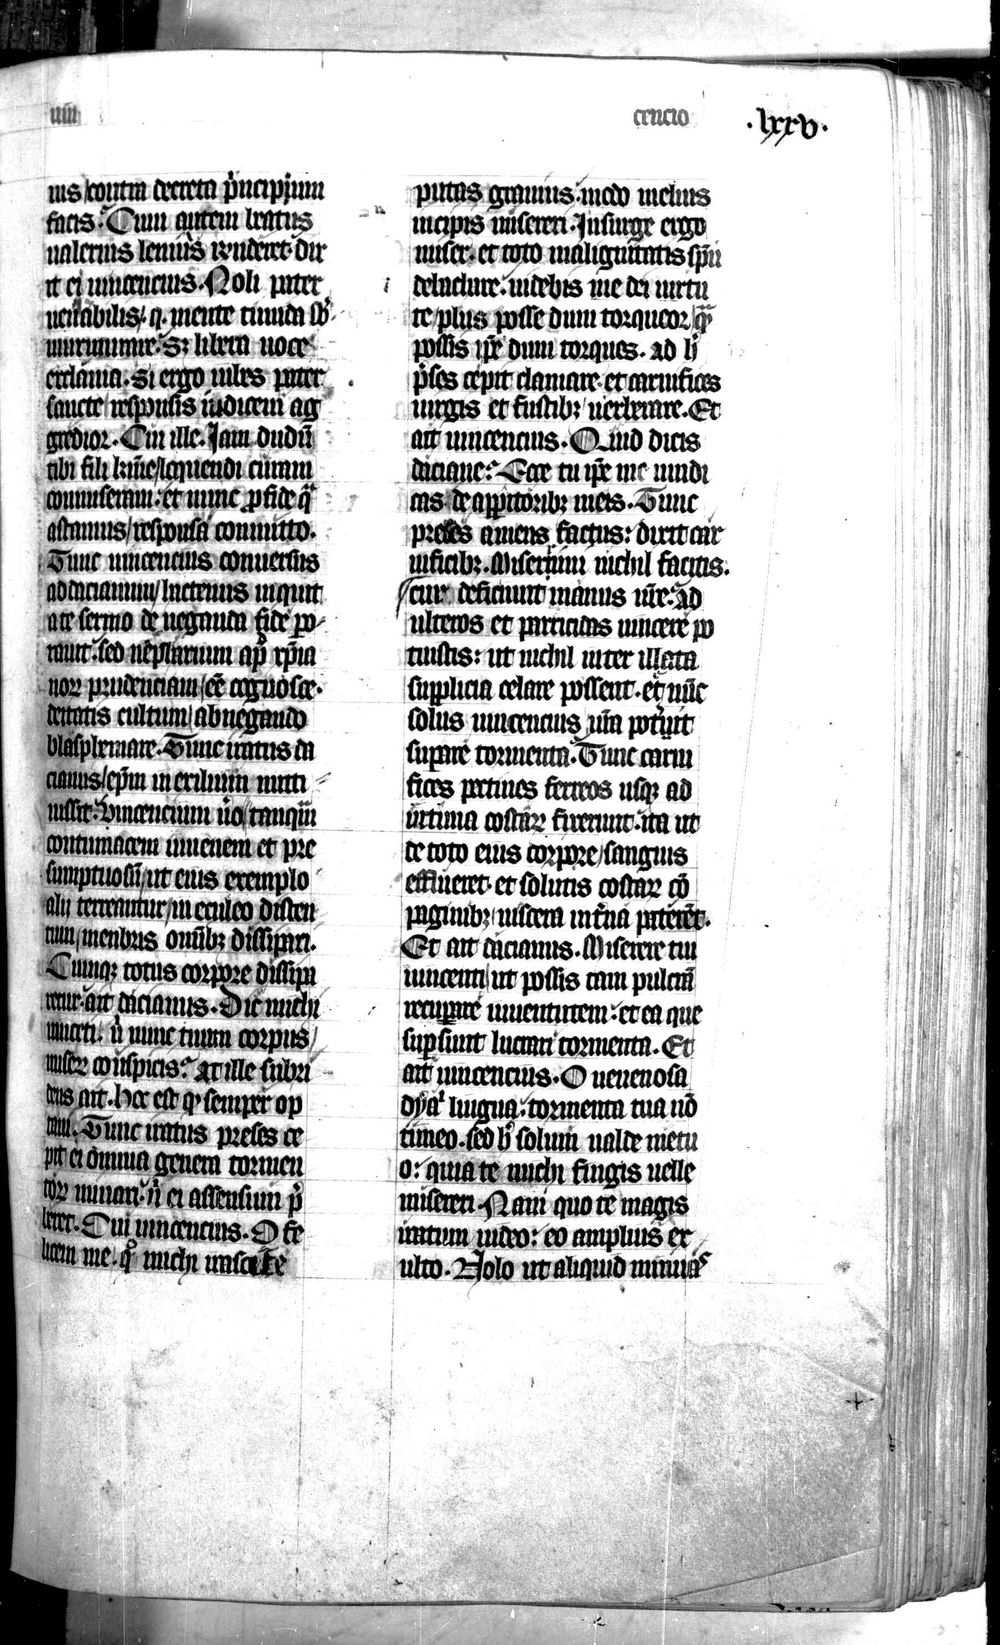 uin
cencio
.lxxv.
nis/contra decreta p̓ncipuum
facis. Cum autem beatus
ualerius leniꝰ rn̄deret. dix
it ei uincencius. Noli pater
uen̓abilis/ q. mente timida sb̓
murmurare. Sꝫ libera uoce
exclama. Si ergo iubes pater
sancte/ responsis iudicem ag
gredior. Cui ille. Jam dudū
tibi fili kr̄me/loquendi curam
commiseram. et nunc ꝓ fide qͣ
astamus/responsa committo.
Tunc uincencius conuersus
ad dacianum/hactenus inquit
a te sermo de neganda fide po
rauit. sed nephariuum ap̄ xp̄ia
noꝝ prudenciam/eē cognosce.
deitatis cultum/abnegando
blasphemare. Tunc iratus da
cianus/ep̄m in exilium mitti
iussit. Vincencium u̓o/tanquā
contumacem iuuenem et pre
sumptuosū/ut eius exemplo
alij terreantur/in eculeo disten
tum/menbris omībꝫ dissipari.
Cumqꝫ totus corpore dissipa
retur. ait dacianus. Dic michi
uincēti. u̓ nunc tuum corpus/
miseꝝ conspicis. At ille subri
dens ait. Hoc est qͦ semper op
taui. Tunc iratus preses ce
pit ei omnia genera tormen
toꝝ minari. n̓ ei assensum p̓
beret. Cui uincencius. O fe
licem me. qͦ michi unscete
putas grauius. modo melius
incipis misereri. Insurge ergo
miser. et toto malignitatis sp̄u
debachare. uidebis me dei uirtu
te/plus posse dum torqueor/qͣ
possis ip̄e dum torques. ad h̓
p̓ses cepit clamare. et carnifices
uirgis et fustibꝫ/uerberare. Et
ait uincencius. Quid dicis
daciane? Ecce tu ip̄e me uindi
cas de apparitoribꝫ meis. Tunc
preses amens factus: dixit car
nificibꝫ. Miserrimi nichil facitis.
cur deficiunt manus ur̄e. Ad
ulteros et parricidas uincere po
tuistis: ut nichil inter illata
supplicia celare possent. et nūc
solus uincencius ur̄a pot̓uit
suꝑare tormenta. Tunc carni
fices pectines ferreos usqꝫ ad
intima costaꝝ fixerunt. ita ut
de toto eius corpore/sanguis
efflueret. et solutis costaꝝ cō
paginibꝫ/uiscera int̓na paterēt.
Et ait dacianus. Miserere tui
uincenti/ut possis tam pulcrā
recuꝑare iuuentutem: et ea que
suꝑsunt lucrari tormenta. Et
ait uincencius. O uenenosa
dyaͤ lingua. tormenta tua nō
timeo. sed h̓ solum ualde metu
o: quia te michi fingis uelle
misereri. Nam quo te magis
iratum uideo: eo amplius ex
ulto. Nolo ut aliquid minuas